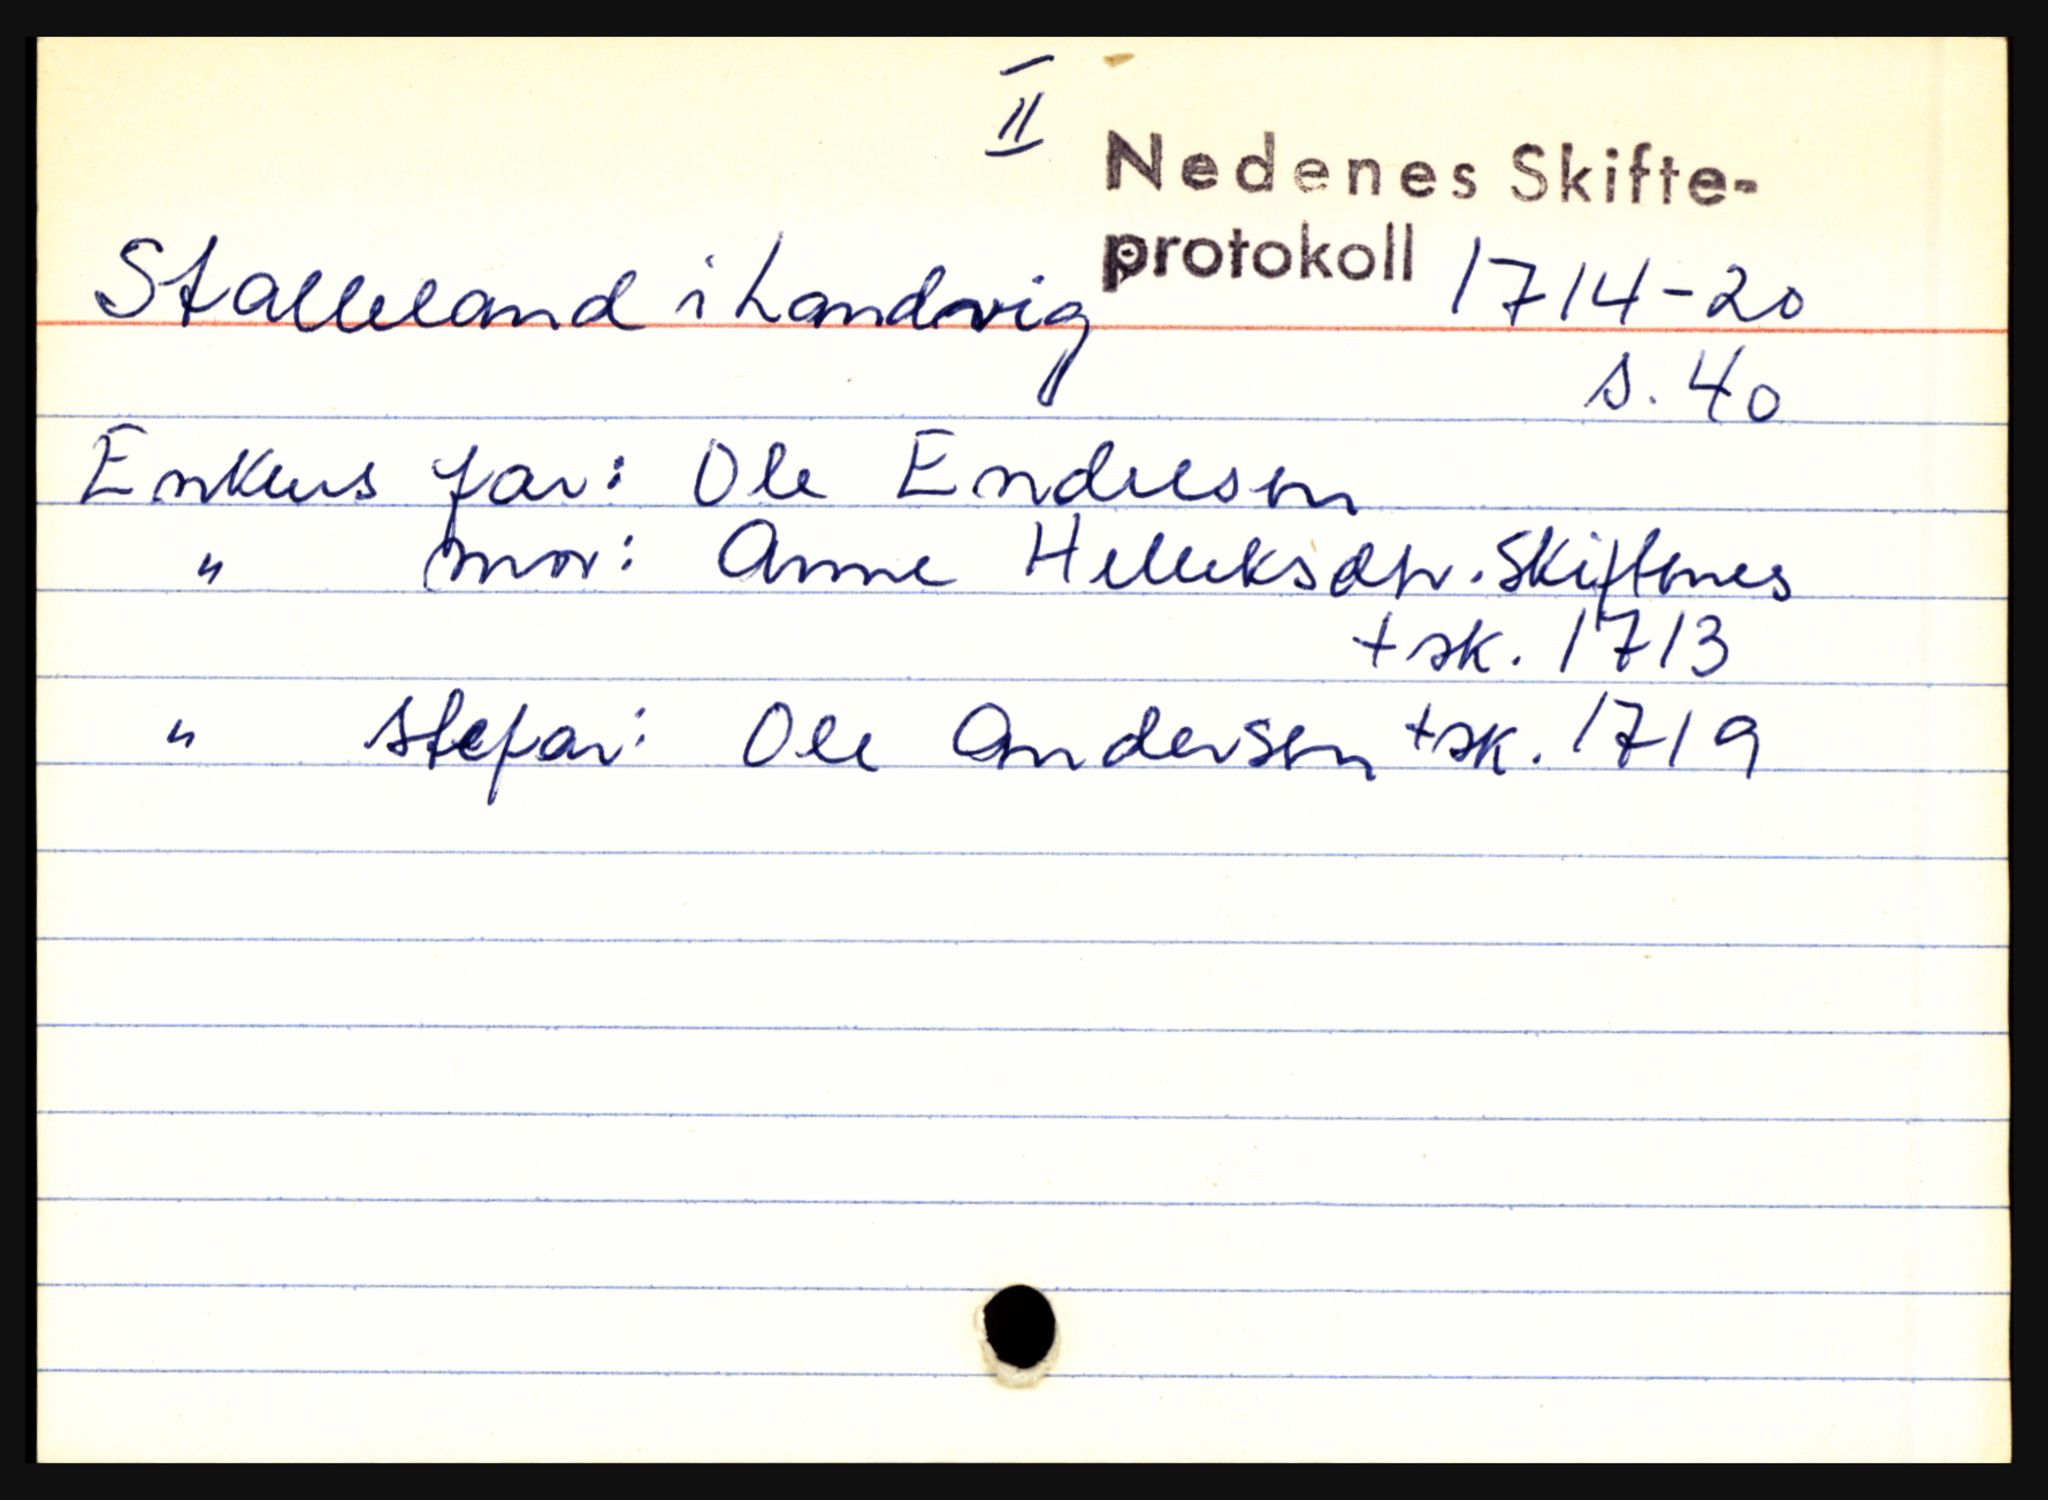 II
Nedenes Skifte-
protokoll 1714-20
Stalleland i Landvig
s. 40
Enkens far: Ole Endresen
" mor: Anne Helleksdtr. Skiftenes
+ sk. 1713
" stefar: Ole Andersen + sk. 1719